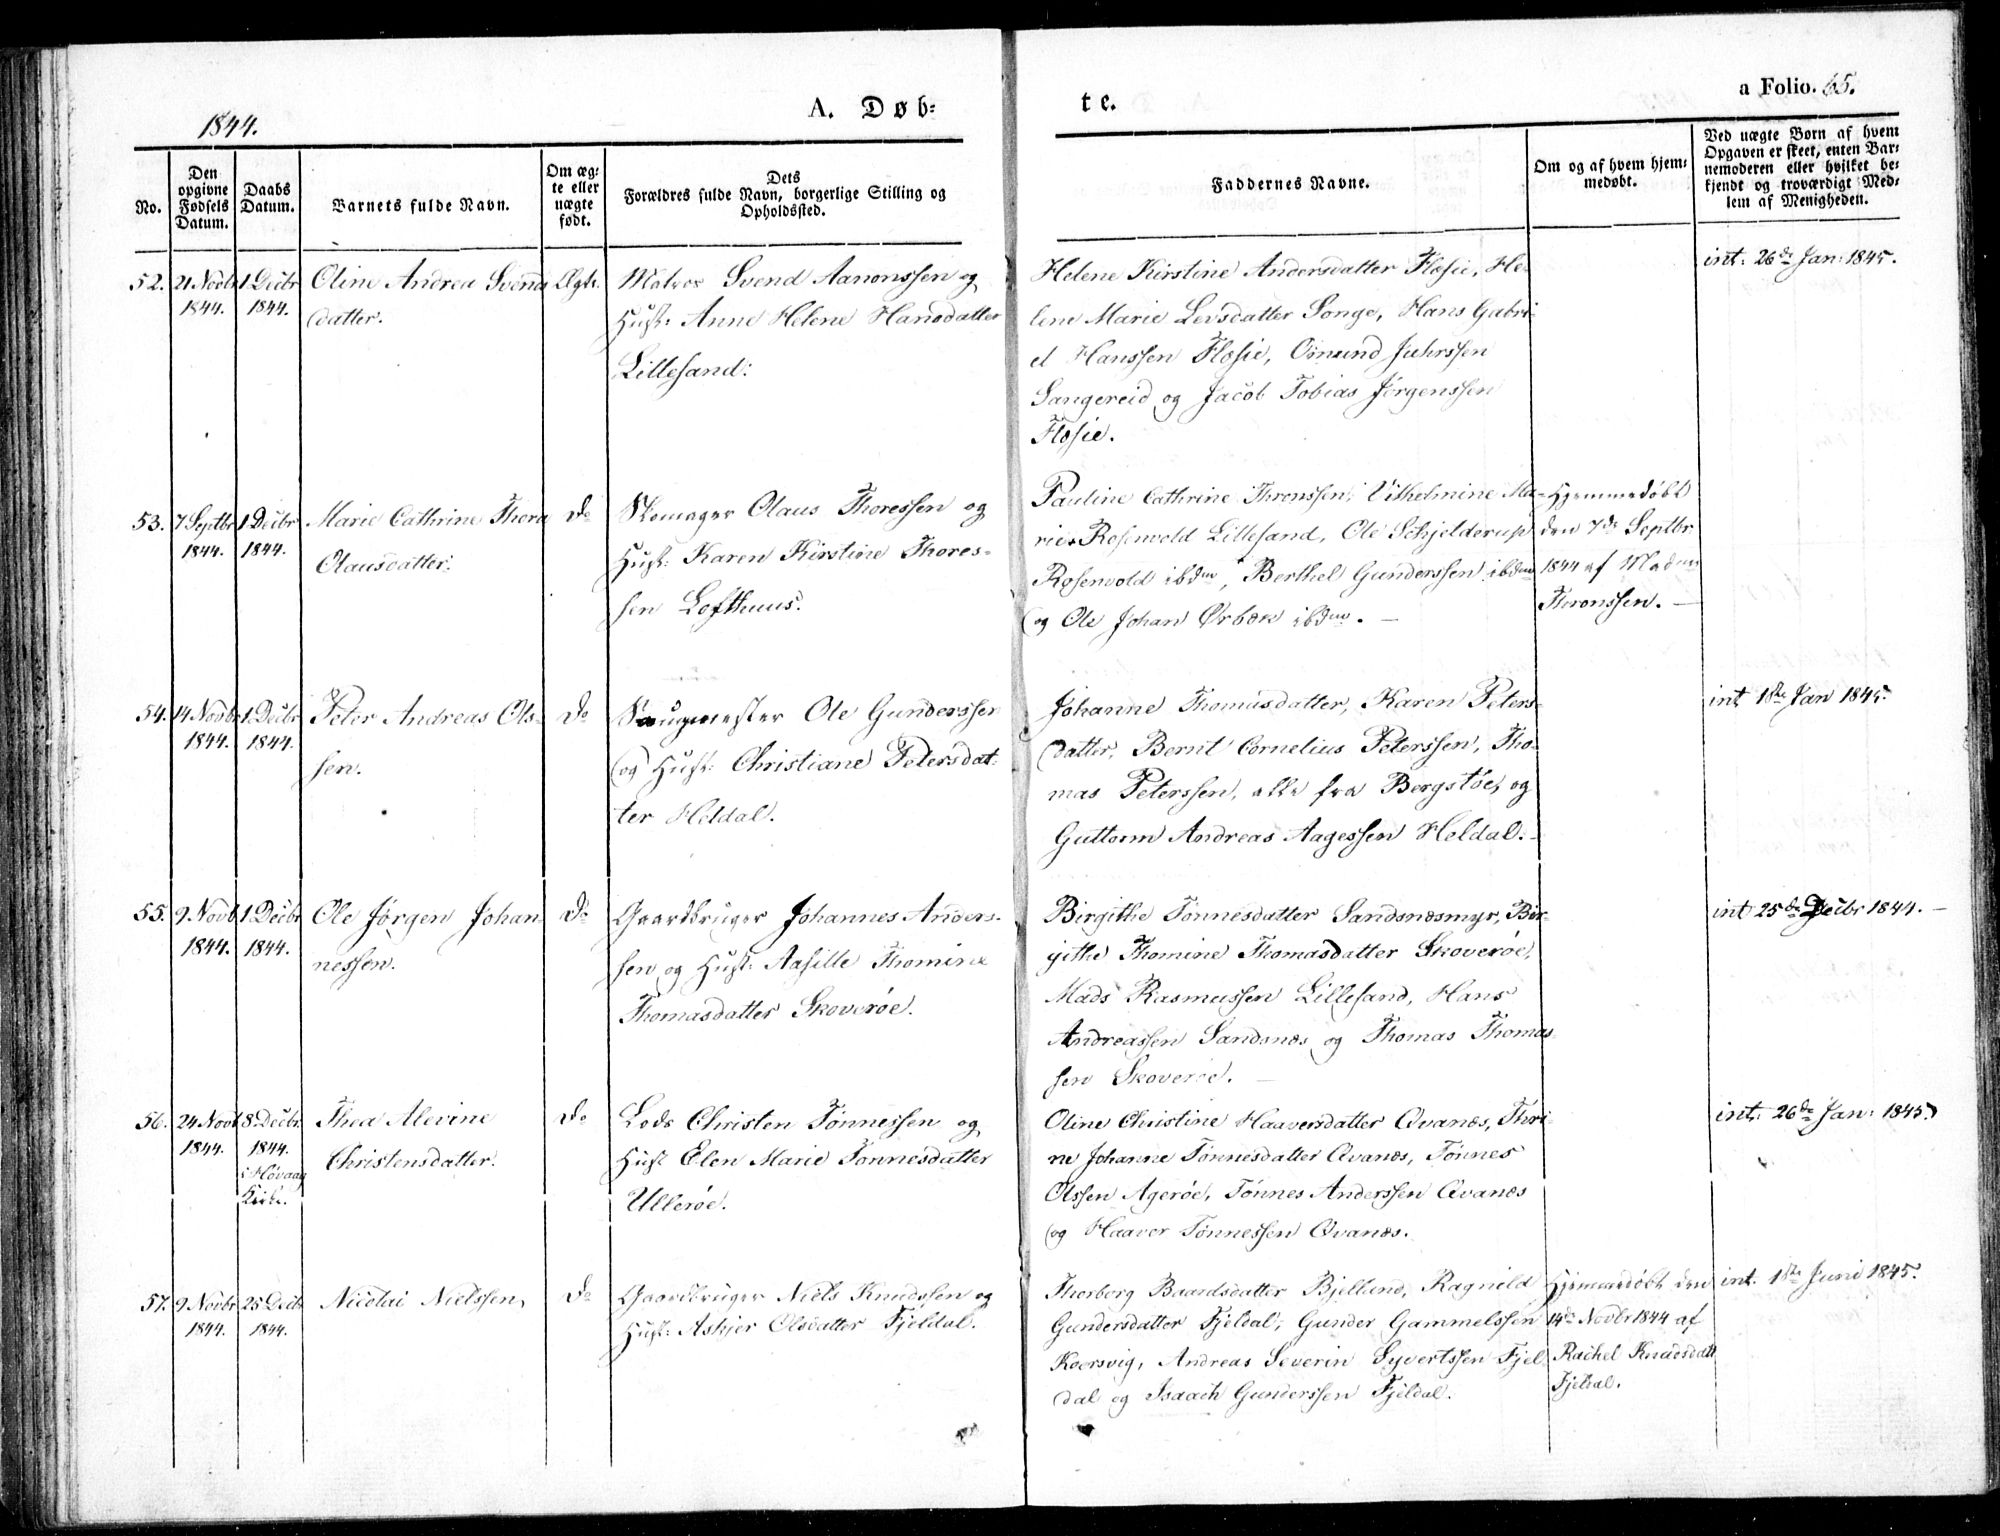 1844.
A. Døb=
te.
a Folio. 65.
No.
Den
opgivne
Fødsels
Datum.
Daabs
Datum.
Barnets fulde Navn.
Om æg=
te eller
uægte
født.
Dets
Forældres fulde Navn, borgerlige Stilling og
Opholdssted.
Faddernes Navne.
Om og af hvem hjem=
medøbt.
Ved uægte Børn af hvem
Opgaven er skeet, enten Bar=
nemoderen eller hvilket be=
kjendt og troværdigt Med=
lem af Menigheden.
52.
21 Novbr
1844.
1 Decbr
1844.
Oline Andrea Svends
datter.
Ægte.
Matros Svend Aanonssen og
Hust: Anne Helene Hansdatter
Lillesand:
Helene Kirstine Andersdatter Flosie, He-
lene Marie Levsdatter Songe, Hans Gabri-
el Hanssen Flosie, Osmund Juhrssen
Sangereid og Jacob Tobias Jørgenssen
Flosie.
int: 26de Jan: 1845.
53.
7 Septbr
1844.
1 Decbr
1844.
Marie Cathrine Thora
Olausdatter.
Do
Skomager Olaus Thoressen og
Hust: Karen Kirstine Thores-
sen Lofthuus.
Pauline Cathrine Thronssen, Vilhelmine Ma-
rie Rosenvold Lillesand, Ole Schjelderup
Rosenvold ibdm, Berthel Gunderssen ibdm
og Ole Johan Ørbæk ibdm. —
Hjemmedøbt
den 7de Septbr
1844 af Madm
Thronssen. —
54.
14 Novbr
1844.
1. Decbr
1844.
Peter Andreas Ols-
sen.
Do
Saugmester Ole Gunderssen
og Hust: Christiane Petersdat-
ter Heldal.
Johanne Thomasdatter, Karen Peters-
datter, Bernt Cornelius Peterssen, Tho-
mas Peterssen, alle fra Bergstøe, og
Guttorm Andreas Aagessen Heldal. -
int 1ste Jan 1845.
55.
9 Novb
1844.
1. Decbr
1844.
Ole Jørgen Johan
nessen.
Do
Gaardbruger Johannes Anders-
sen og Hust: Aasille Thomine
Thomasdatter Skoverøe.
Birgithe Tønnesdatter Sandsnæsmyr, Bir-
githe Thomine Thomasdatter Skoverøe,
Mads Rasmussen Lillesand, Hans
Andreassen Sandsnæs og Thomas Thomas-
sen Skoverøe. —
int 25de Decbr 1844. —
56.
24 Novb
1844.
8. Decbr.
1844.
i Høvaag
Kirke.
Thea Alevine
Christensdatter.
Do
Lods Christen Tønnessen og
Hust Elen Marie Tønnesdatter
Ullerøe.
Oline Christine Haaversdatter Qvanes, Thri-
ne Johanne Tønnesdatter Qvanes, Tønnes
Olssen Agerøe, Tønnes Anderssen Qvanes
og Haaver Tønnessen Qvanes.
int: 26de Jan: 1845.
57.
9 Novbr
1844.
25 Decbr
1844.
Nicolai Nielssen,
Do
Gaardbruger Niels Knudssen og
Hust: Askjer Olsdatter Fjeldal.
Thorborg Baardsdatter Bjellund, Ragnild
Gundersdatter Fjeldal, Gunder Gammelssen
Koersvig, Andreas Severin Syvertssen Fjel
dal og Isaach Gunderssen Fjeldal.
Hjemmedøbt den
14de Novbr 1844 af
Rachel Knudsdatt
Fjeldal.
int. 1ste Juni 1845.